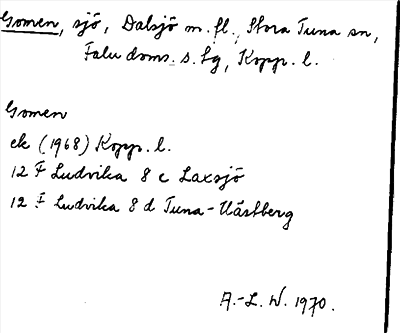 Gomen, sjö, Dalsjö m. fl., Stora Tuna sn,
Falu doms. s. fg, Kopp. l.
Gomen
ek (1968) Kopp. l.
12 F Ludvika 8 c Laxsjö
12 F Ludvika 8 d Tuna-Västberg
A.-L. W. 1970.